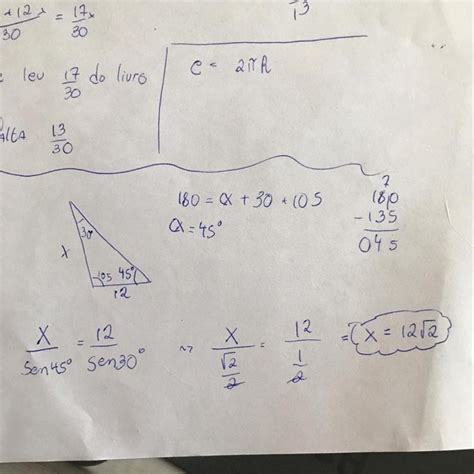 + 12x / 30 = 17x / 30
13
leu 17/30 do livro
C = 2πR
alta 13/30
180 = α + 30 + 105
α = 45°
180
-135
045
30°
x
105 45°
12
x / Sen45° = 12 / Sen30° ~ x / (√2/2) = 12 / (1/2) = x = 12√2